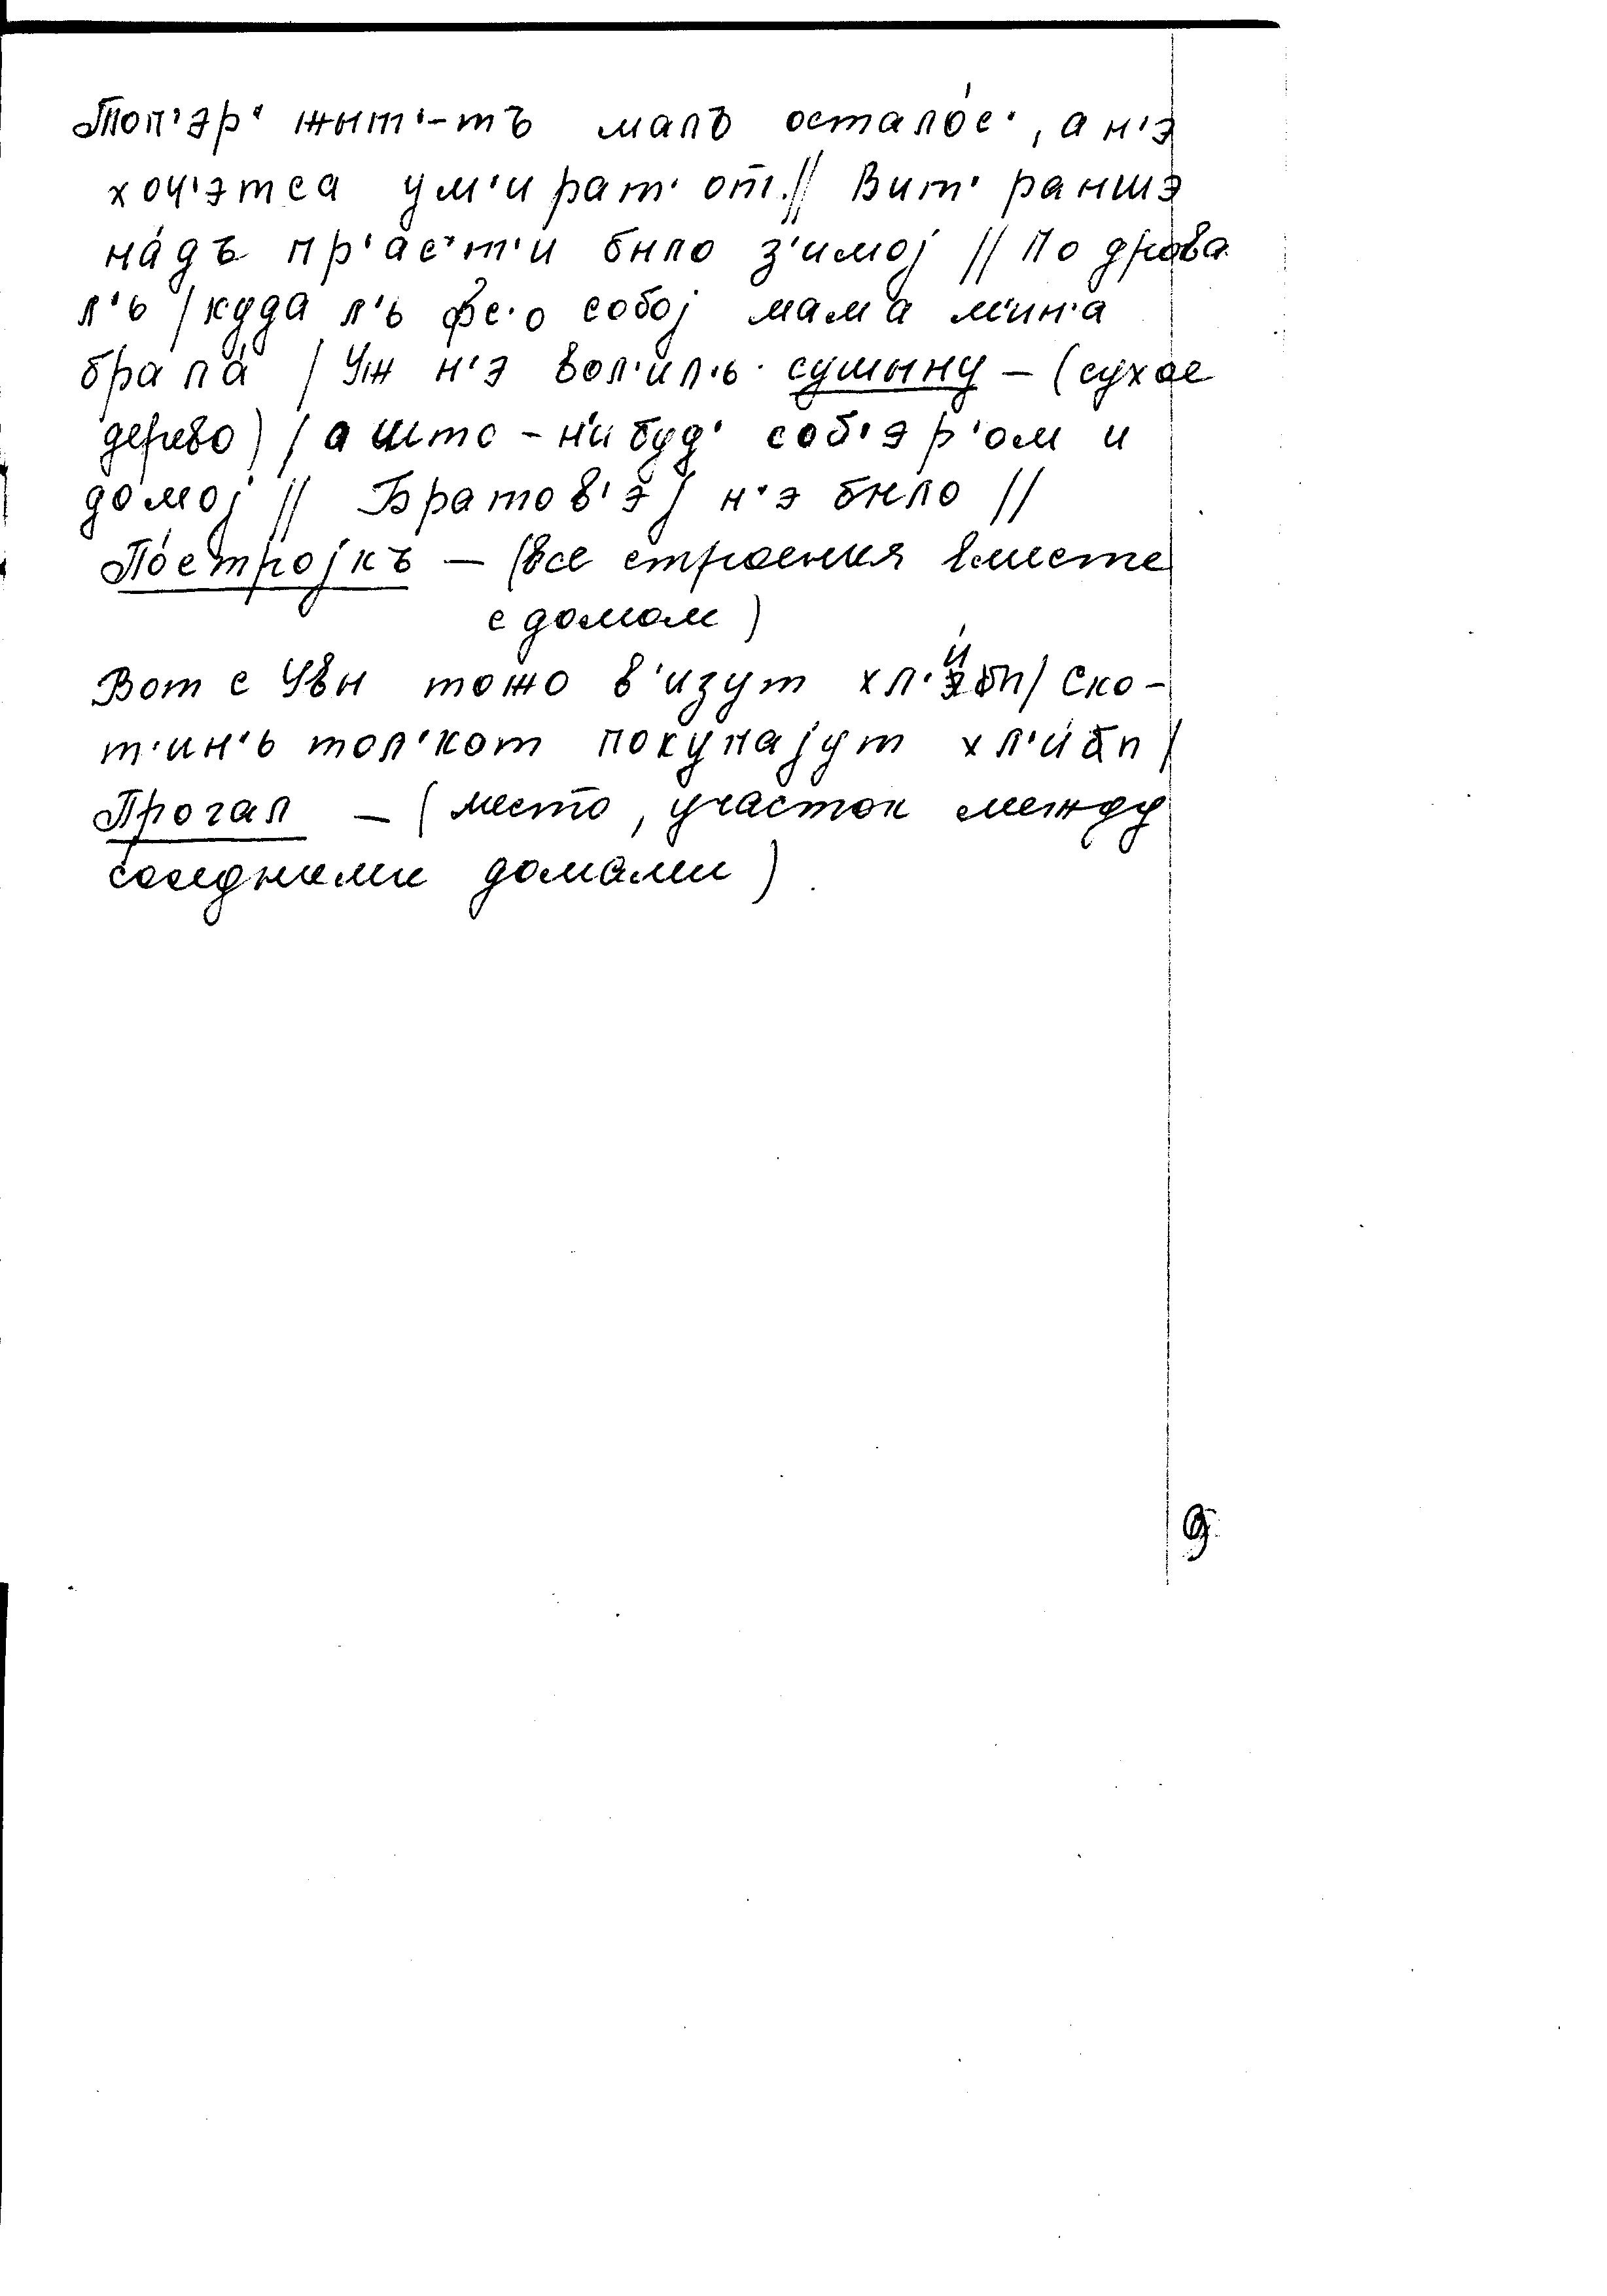 Топ'эр' жыт'-тъ малъ остало́с', а н'э
хоч'этса ум'ират' от.// Вит' раншэ
на́дъ пр'ас'т'и было з'имоj // По дрова
л'ь / куда л'ь фс'о собоj мама м'ин'а
брала́ / Уж н'э вол'ил'ь сушыну – (сухое
дерево) / а што-н'ибуд' соб'эр'ом и
домоj // Братов'эj н'э было //
По́строjкъ – (все строения вместе
с домом)
Вот с Увы тожо в'изут хл'и́бп / Ско-
т'ин'ь тол'кот покупаjут хл'и́бп /
Прогал – (место, участок между
соседними домами)
9